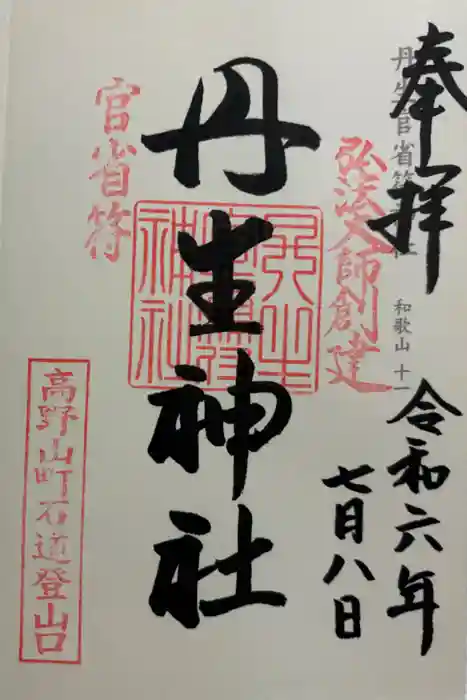 奉拝
丹生官省符神社
和歌山 十一
令和六年
七月八日
弘法大師創建
丹生神社
官省符
高野山町石道登山口